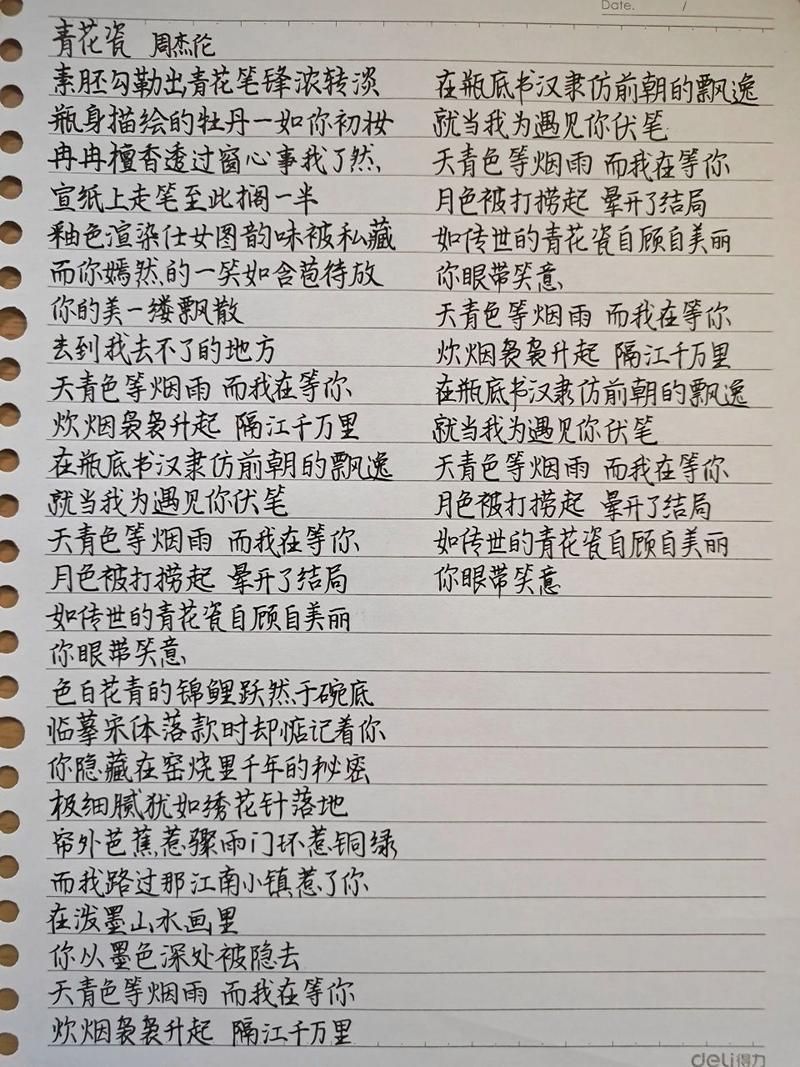 Date. /
青花瓷 周杰伦
素胚勾勒出青花笔锋浓转淡
瓶身描绘的牡丹一如你初妆
冉冉檀香透过窗心事我了然
宣纸上走笔至此搁一半
釉色渲染仕女图韵味被私藏
而你嫣然的一笑如含苞待放
你的美一缕飘散
去到我去不了的地方
天青色等烟雨 而我在等你
炊烟袅袅升起 隔江千万里
在瓶底书汉隶仿前朝的飘逸
就当我为遇见你伏笔
天青色等烟雨 而我在等你
月色被打捞起 晕开了结局
如传世的青花瓷自顾自美丽
你眼带笑意
色白花青的锦鲤跃然于碗底
临摹宋体落款时却惦记着你
你隐藏在窑烧里千年的秘密
极细腻犹如绣花针落地
帘外芭蕉惹骤雨门环惹铜绿
而我路过那江南小镇惹了你
在泼墨山水画里
你从墨色深处被隐去
天青色等烟雨 而我在等你
炊烟袅袅升起 隔江千万里
在瓶底书汉隶仿前朝的飘逸
就当我为遇见你伏笔
天青色等烟雨 而我在等你
月色被打捞起 晕开了结局
如传世的青花瓷自顾自美丽
你眼带笑意
天青色等烟雨 而我在等你
炊烟袅袅升起 隔江千万里
在瓶底书汉隶仿前朝的飘逸
就当我为遇见你伏笔
天青色等烟雨 而我在等你
月色被打捞起 晕开了结局
如传世的青花瓷自顾自美丽
你眼带笑意
deli得力